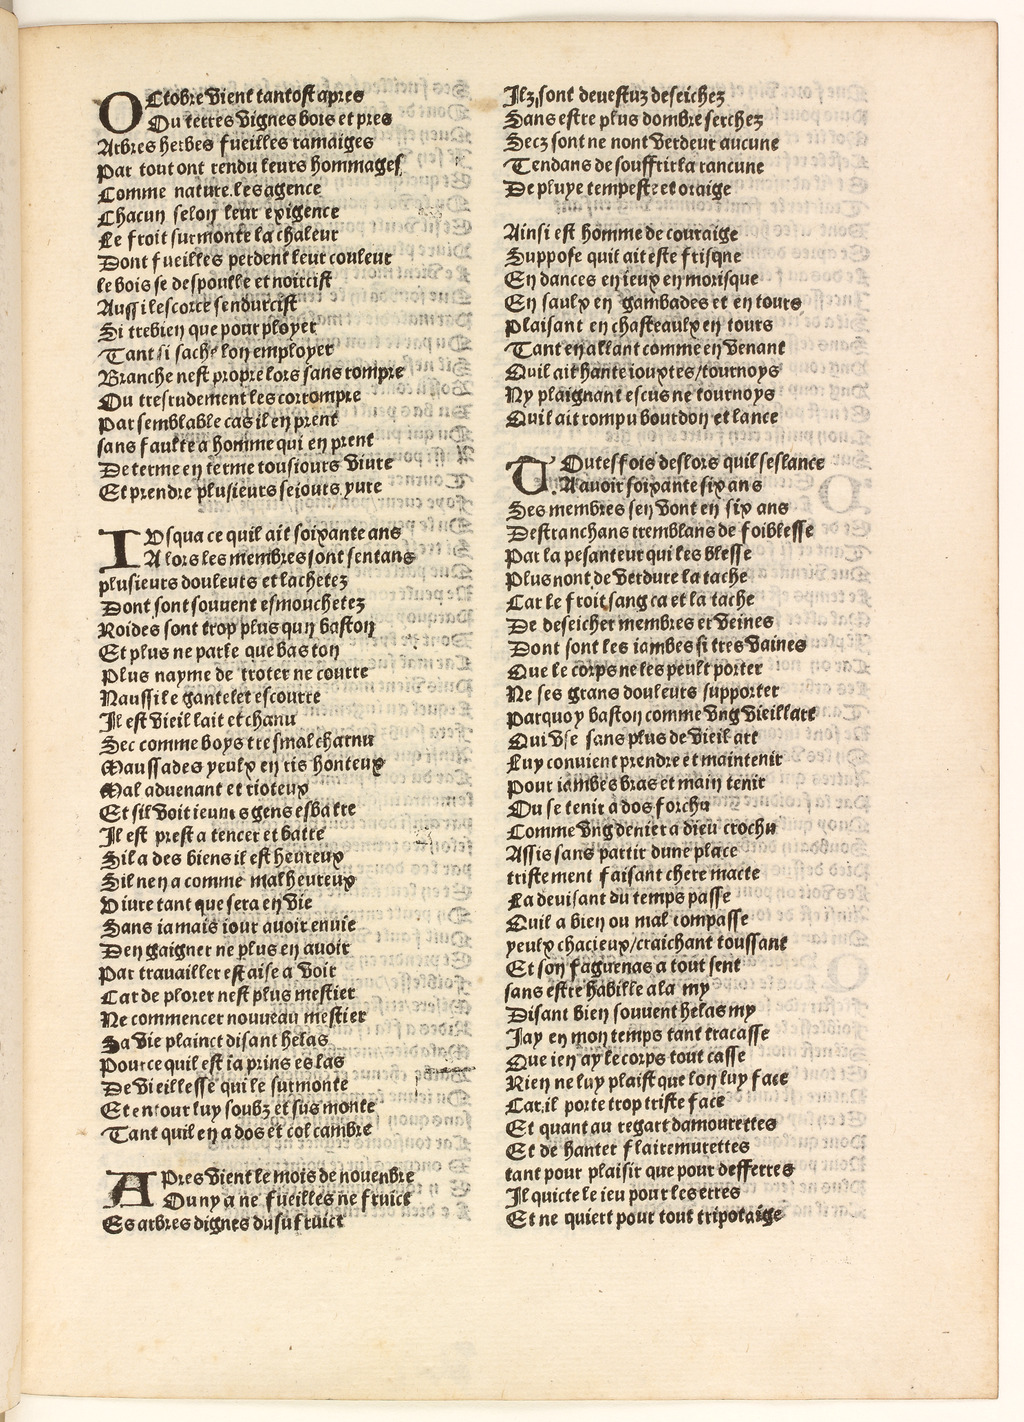 OCtobre vient tantost apres
Ou terres vignes bois et pres
Arbres herbes fueilles ramaiges
Par tout ont rendu leurs hommages
Comme nature les agence
Chacun selon leur exigence
Le froit surmonte la chaleur
Dont fueilles perdent leur couleur
le bois se despoulle et noircist
Aussi lescorce sendurcist
Si trebien que pour ployer
Tant si sache lon employer
Branche nest propre lors sans rompre
Ou tresrudement les corrompre
Par semblable cas il en prent
sans faulte a homme qui en prent
De terme en terme tousiours viure
Et prendre plusieurs seiours yure
IVsqua ce quil ait soixante ans
A lors les membres sont sentans
plusieurs douleurs et lachetez
Dont sont souuent esmouchetez
Roides sont trop plus quun baston
Et plus ne parle que bas ton
Plus nayme de troter ne courre
Naussi le gantelet escourre
Il est vieil lait et chanu
Sec comme boys tresmal charnu
Maussades yeulx en ris honteux
Mal aduenant et rioteux
Et sil voit ieunes gens esbatre
Il est prest a tencer et batre
Sil a des biens il est heureux
Sil nen a comme malheureux
Viure tant que sera en vie
Sans iamais iour auoir enuie
Den gaigner ne plus en auoir
Par trauailler est aise a voir
Car de plorer nest plus mestier
Ne commencer nouueau mestier
Sa vie plainct disant helas
Pource quil est ia prins es las
De vieillesse qui le surmonte
Et entour luy soubz et sus monte
Tant quil en a dos et col cambre
APres vient le mois de nouenbre
Ou ny a ne fueilles ne fruict
Es arbres dignes du sufruict
Ilz sont deuestuz deseichez
Sans estre plus dombre serchez
Secz sont ne nont verdeur aucune
Tendans de souffrir la rancune
De pluye tempeste et oraige
Ainsi est homme de couraige
Suppose quil ait este frisque
En dances en ieux en morisque
En saulx en gambades et en tours
Plaisant en chasteaulx en tours
Tant en allant comme en venant
Quil ait hante iouxtes/tournoys
Ny plaignant escus ne tournoys
Quil ait rompu bourdon et lance
TOutesfois deslors quil seslance
A auoir soixante six ans
Ses membres sen vont en six ans
Destranchans tremblans de foiblesse
Par la pesanteur qui les blesse
Plus nont de verdure la tache
Car le froit sang ca et la tache
De deseicher membres et veines
Dont sont les iambes si tres vaines
Que le corps ne les peult porter
Ne ses grans douleurs supporter
Parquoy baston comme vng vieillart
Qui vse sans plus de vieil art
Luy conuient prendre et maintenir
Pour iambes bras et main tenir
Ou se tenir a dos forchu
Comme vng denier a dieu crochu
Assis sans partir dune place
tristement faisant chere macte
La deuisant du temps passe
Quil a bien ou mal compasse
yeulx chacieux/craichant toussant
Et son faguenas a tout sent
sans estre habille a la my
Disant bien souuent helas my
Jay en mon temps tant tracasse
Que ien ay le corps tout casse
Rien ne luy plaist que lon luy face
Car il porte trop triste face
Et quant au regart damourettes
Et de hanter flairemurettes
tant pour plaisir que pour desserres
Il quicte le ieu pour les erres
Et ne quiert pour tout tripotaige